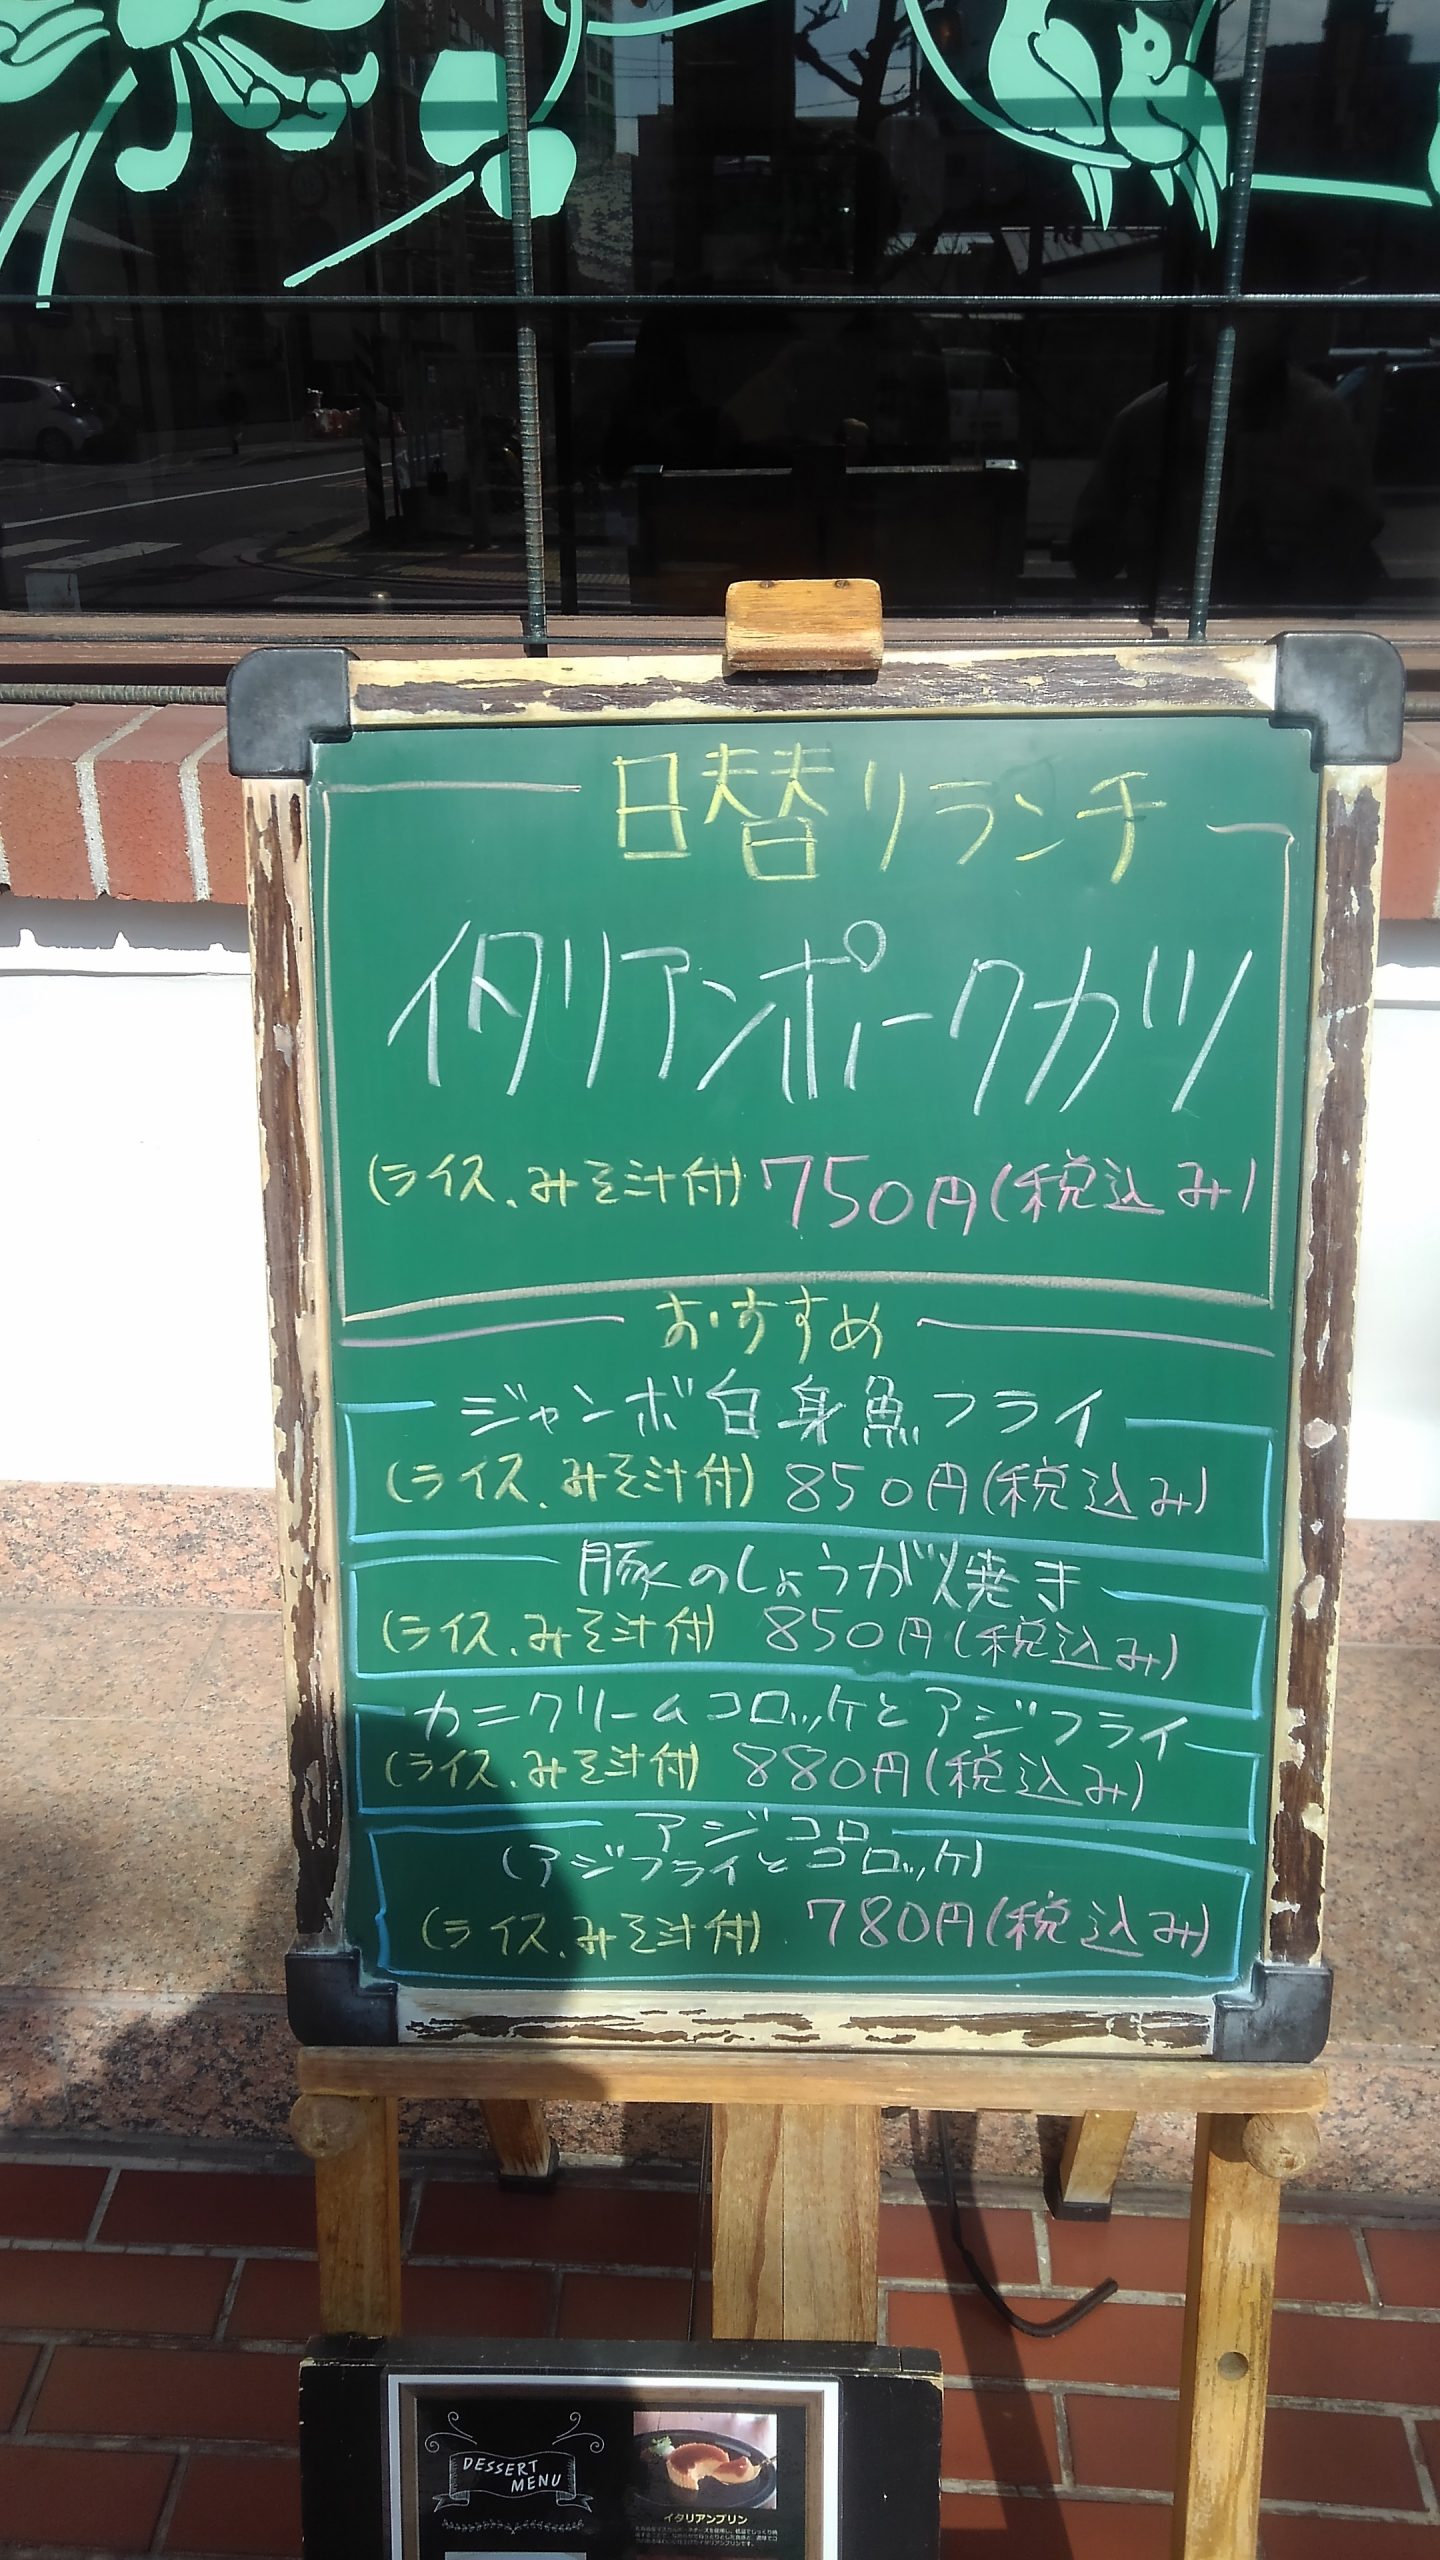 日替リランチ
イタリアンポークカツ
(ライス、みそ汁付) 750円(税込み)
おすすめ
ジャンボ白身魚フライ
(ライス、みそ汁付) 850円(税込み)
豚のしょうが焼き
(ライス、みそ汁付) 850円(税込み)
カニクリームコロッケとアジフライ
(ライス、みそ汁付) 880円(税込み)
アジコロ
(アジフライとコロッケ)
(ライス、みそ汁付) 780円(税込み)
DESSERT
MENU
イタリアンプリン